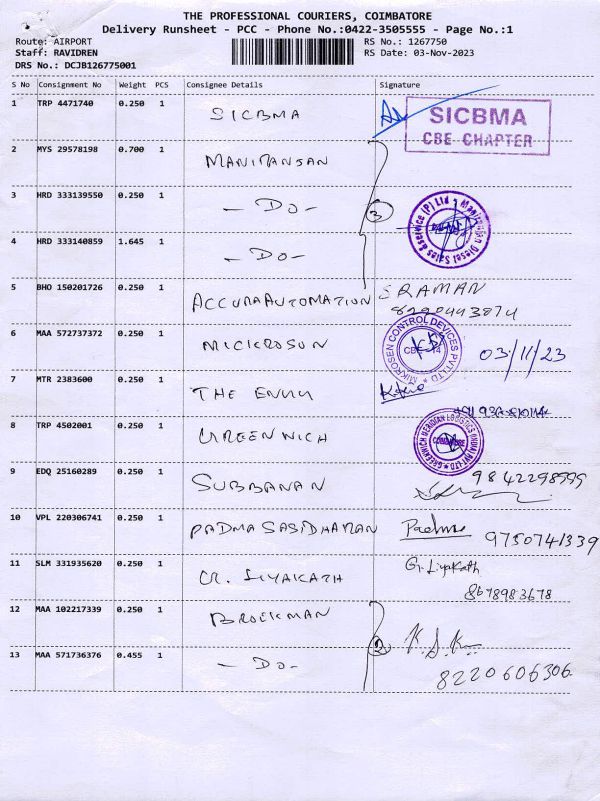 THE PROFESSIONAL COURIERS, COIMBATORE
Delivery Runsheet - PCC - Phone No.:0422-3505555 - Page No.:1
Route: AIRPORT
Staff: RAVIDREN
DRS No.: DCJB126775001
RS No.: 1267750
RS Date: 03-Nov-2023
S No Consignment No Weight PCS Consignee Details Signature
1 TRP 4471740 0.250 1 SICBMA
SICBMA
CBE CHAPTER
2 MYS 29578198 0.700 1 MANIMANSAN
3 HRD 333139550 0.250 1 - DO - 3
4 HRD 333140859 1.645 1 - DO -
5 BHO 150201726 0.250 1 ACCURAAUTOMATION S RAMAN
6 MAA 572737372 0.250 1 MICKROSUN
MIKROSEN CONTROL DEVICES PVT LTD
CBE - 14
03/11/23
7 MTR 2383600 0.250 1 THE
8 TRP 4502001 0.250 1 GREENWICH
GREENWICH MERIDIAN LOGISTICS INDIA PV LTD
9 EDQ 25160289 0.250 1 SUBBANAN
10 VPL 220306741 0.250 1 PADMASASIDHARAN Padma 9750741339
11 SLM 331935620 0.250 1 G. LIYAKATH G. Liyakath
8678983678
12 MAA 102217339 0.250 1 BROEKMAN
13 MAA 571736376 0.455 1 - DO - 2 K. S. K
8220606306